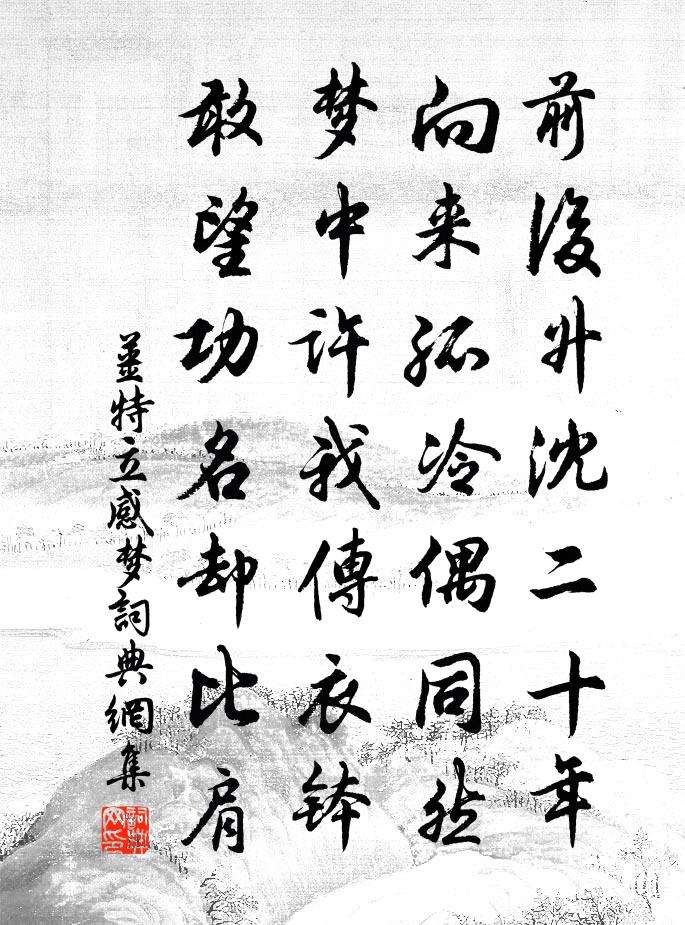 前後升沈二十年
向来孤冷偶同然
梦中許我傳衣鉢
敢望功名却比肩
薑特立感梦詞典網集
詞典网印